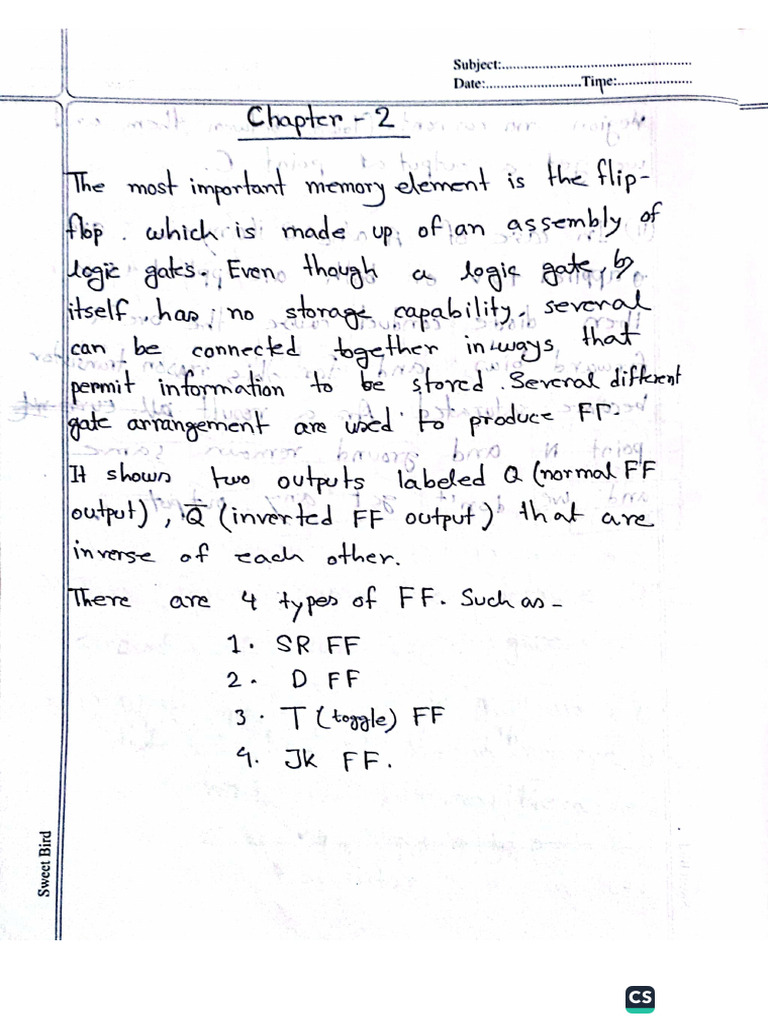 Subject:.....................................................
Date:...........................Time:.....................
Chapter - 2
The most important memory element is the flip-
flop. which is made up of an assembly of
logic gates. Even though a logic gate, by
itself, has, no storage capability, several
can be connected together in ways that
permit information to be stored. Several different
gate arrangement are used to produce FF.
It shows two outputs labeled Q (normal FF
output), Q̅ (inverted FF output) that are
inverse of each other.
There are 4 types of FF. Such as -
1. SR FF
2. D FF
3. T (toggle) FF
4. Jk FF.
Sweet Bird
CS